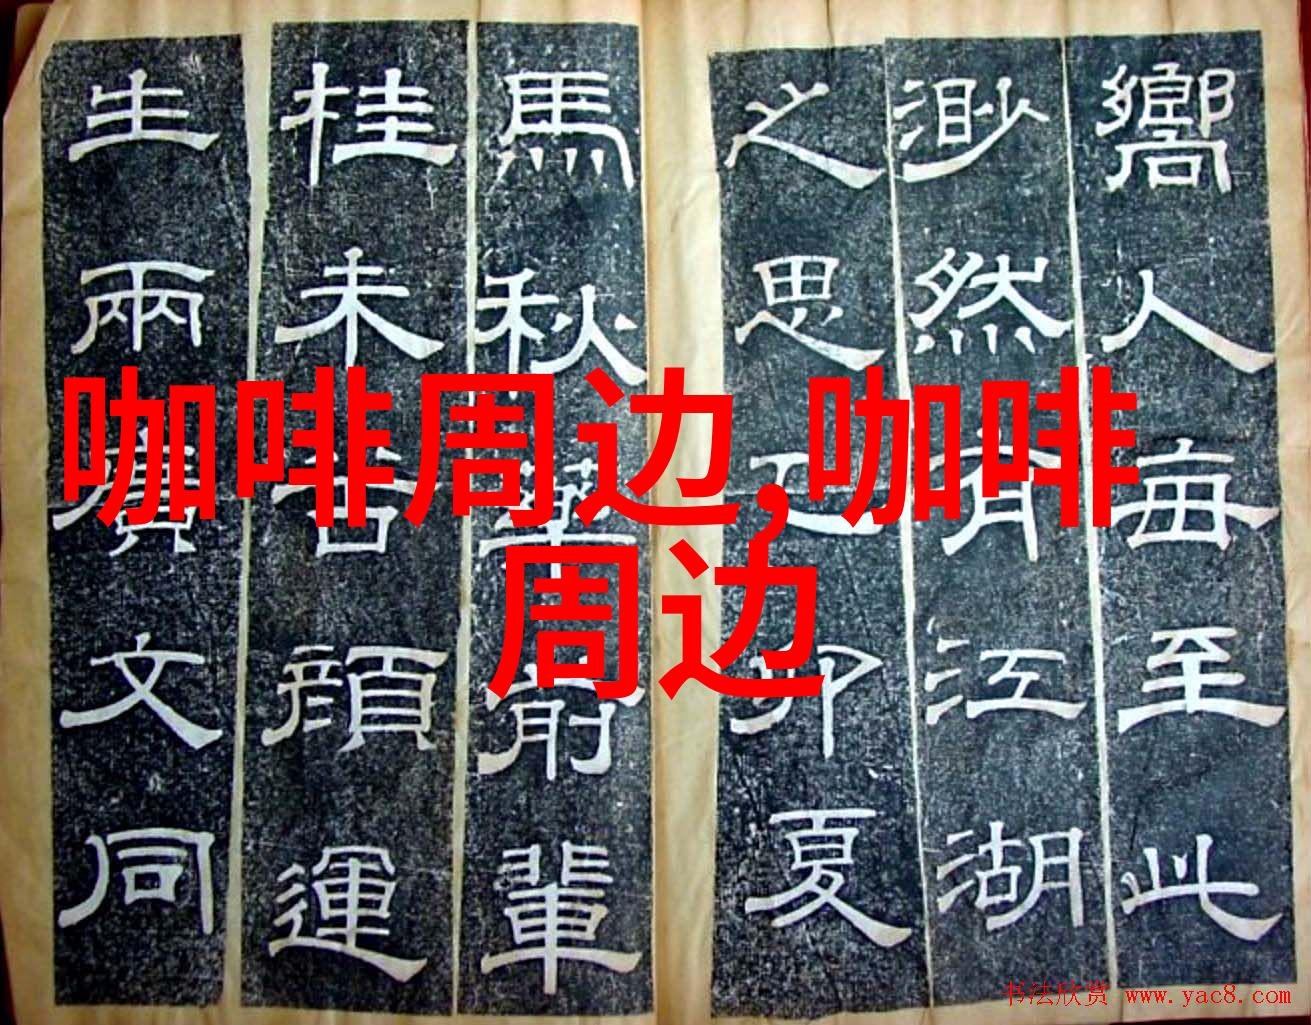 嚮人每至此
渺然有江湖
之思乙卯夏
馬秋藥前輩
桂未谷顔運
生兩廣文同
咖啡周边,咖啡
周边
书法欣赏 www.yac8.com